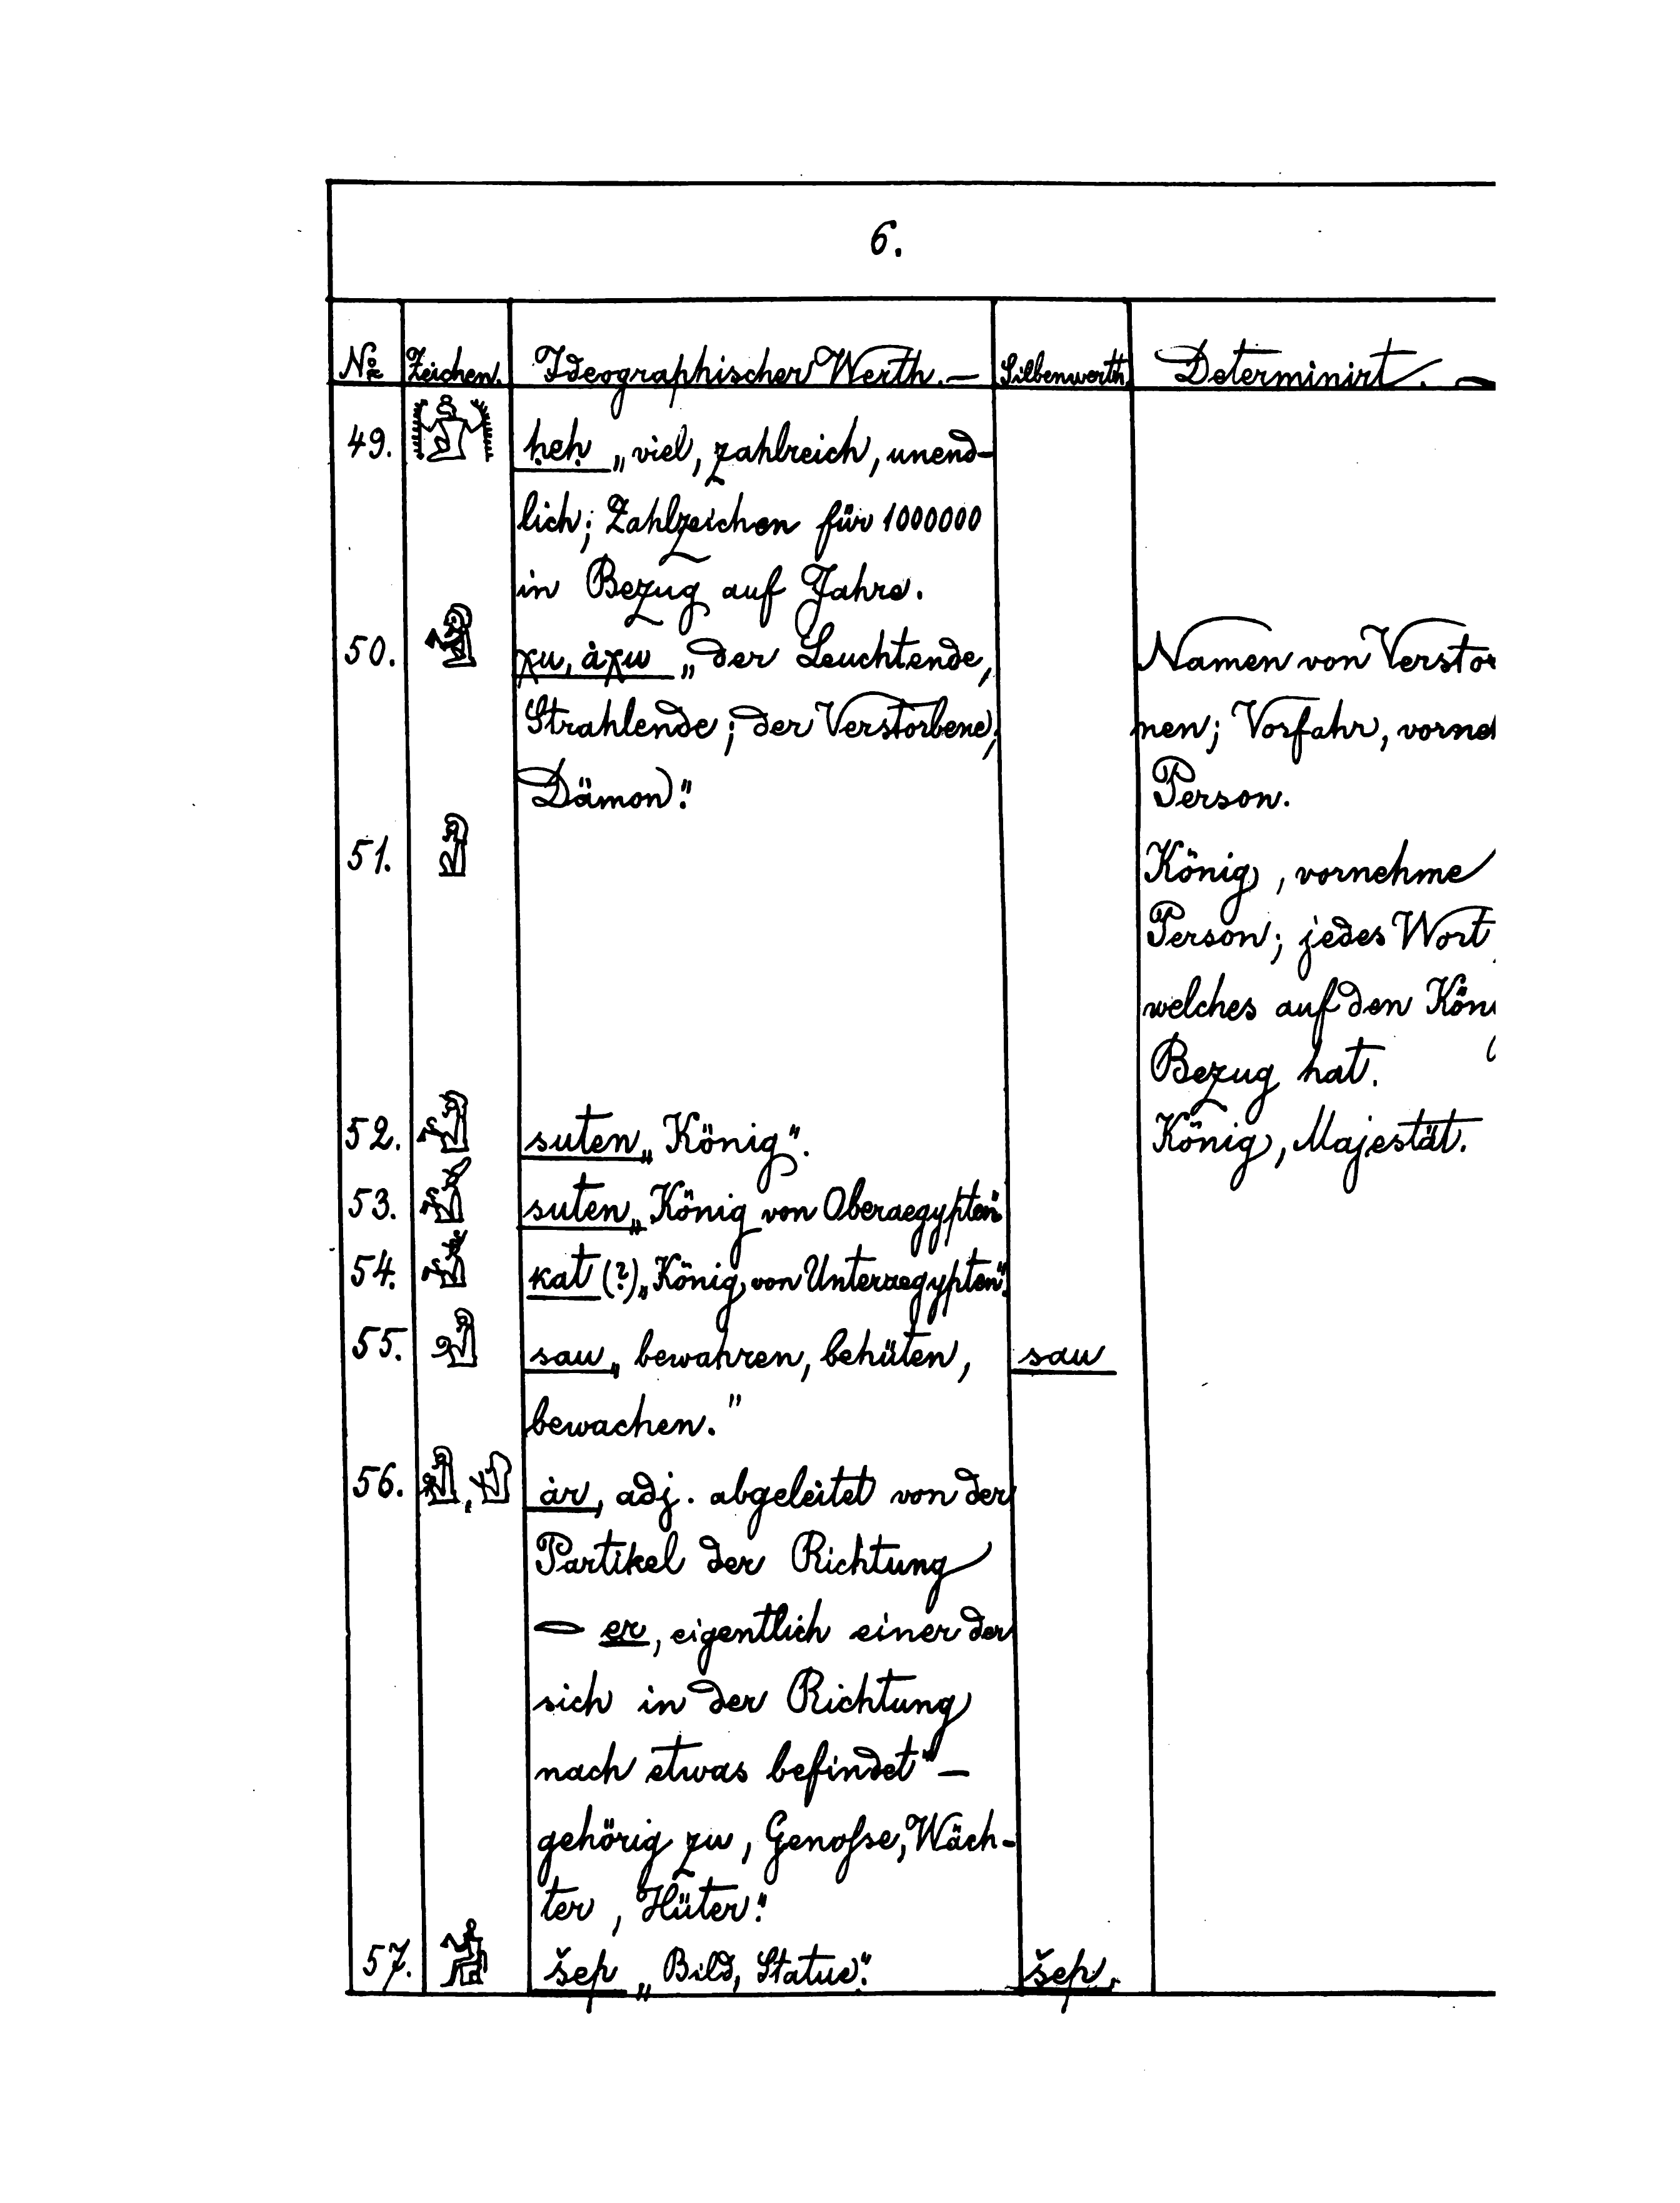 6.
No Zeichen. Ideographischer Werth. — Silbenwerth. Determinirt. —
49. ḥeḥ „viel, zahlreich, unend-
lich; Zahlzeichen für 1000000
in Bezug auf Jahre.
50. χu, ȧχu „der Leuchtende, Namen von Verstor
Strahlende; der Verstorbene, nen; Vorfahr, vorneh
Dämon." Person.
51. König, vornehme
Person; jedes Wort,
welches auf den Köni
Bezug hat.
52. suten „König". König, Majestät.
53. suten „König von Oberaegypten"
54. kat (?) „König von Unteraegypten".
55. sau „bewahren, behüten, sau
bewachen."
56. ȧr, adj. abgeleitet von der
Partikel der Richtung
𓂋 er, eigentlich einer der
sich in der Richtung
nach etwas befindet" —
gehörig zu, Genoſse, Wäch-
ter, Hüter."
57. šep „Bild, Statue." šep.